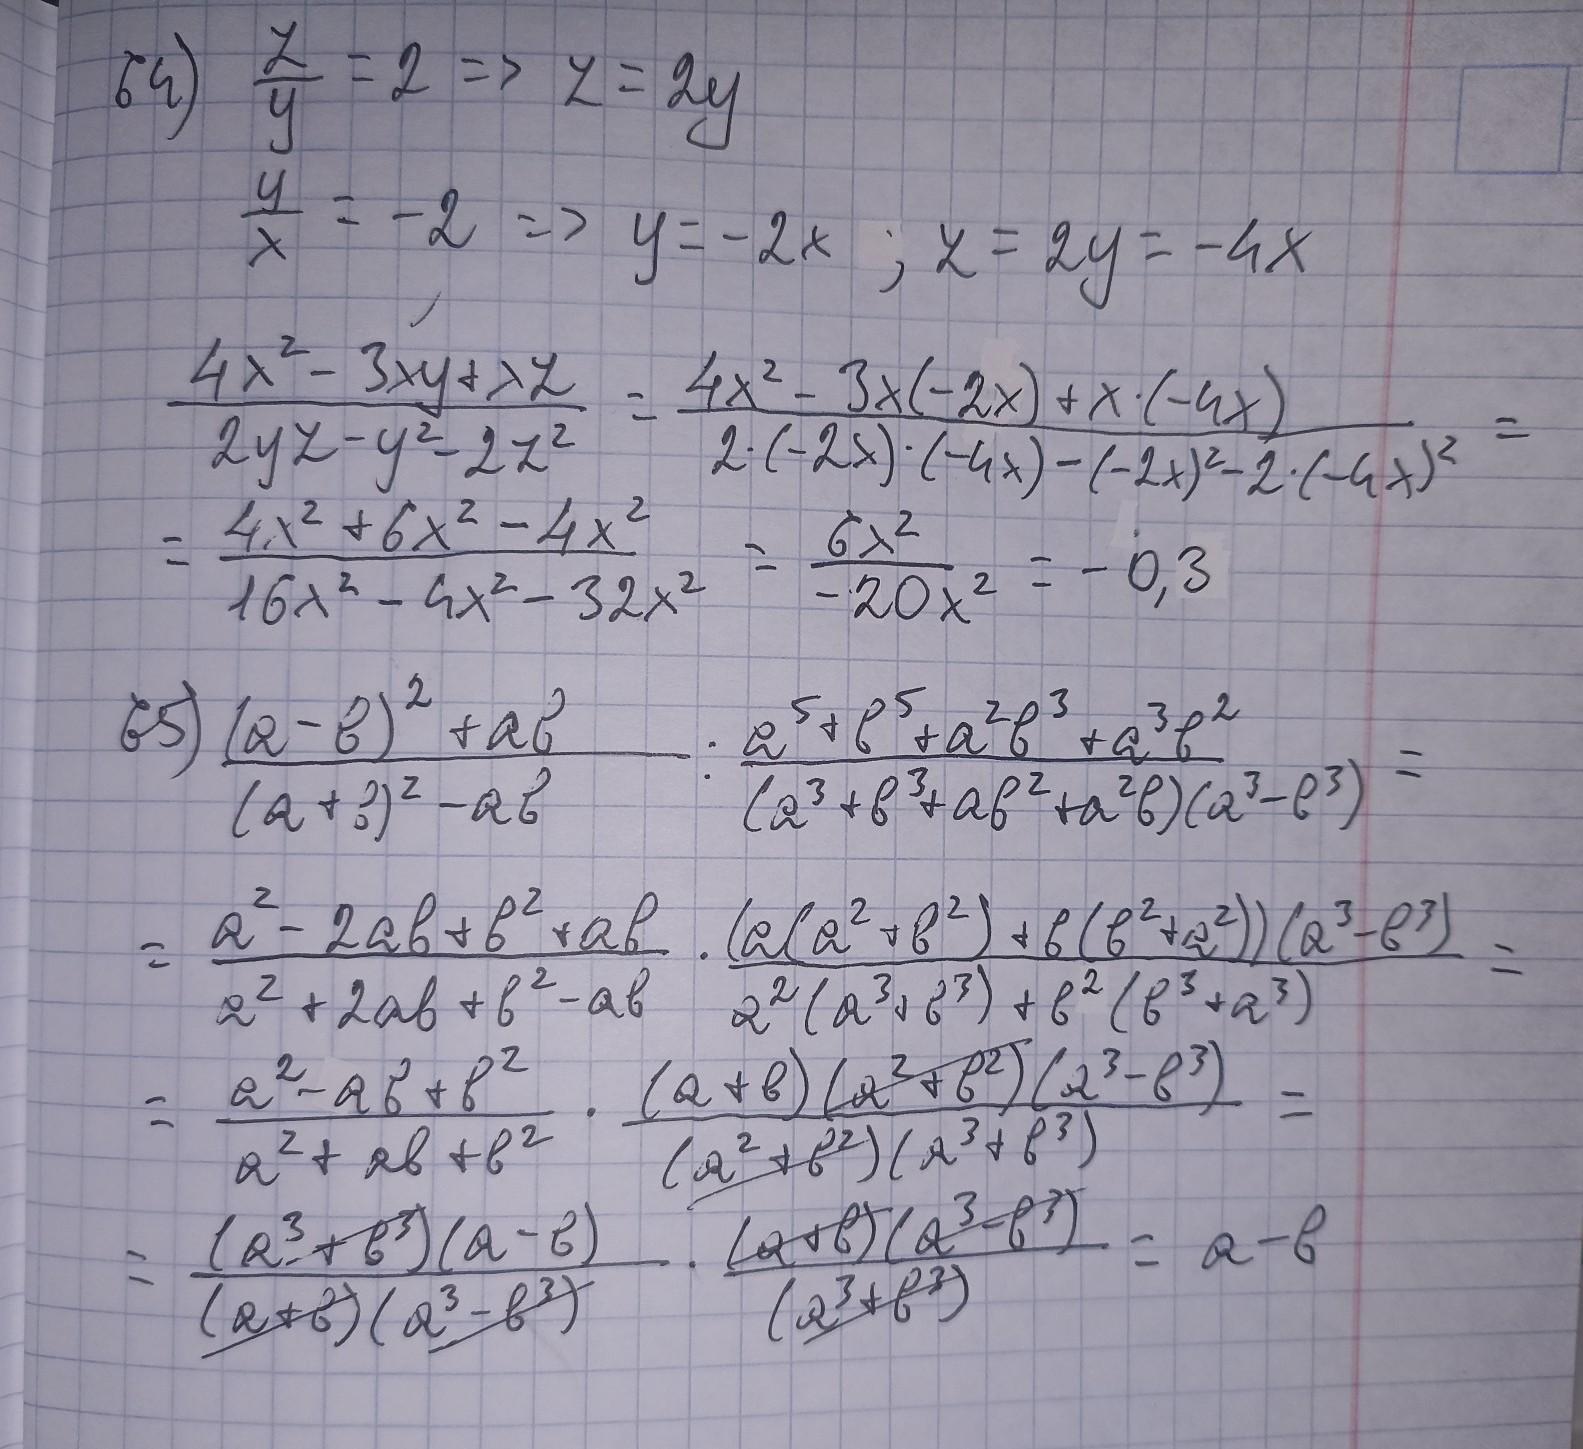 64) z/y = 2 => z = 2y
y/x = -2 => y = -2x ; z = 2y = -4x
(4x² - 3xy + xz)/(2yz - y² - 2z²) = (4x² - 3x(-2x) + x·(-4x))/(2·(-2x)·(-4x) - (-2x)² - 2·(-4x)²) =
= (4x² + 6x² - 4x²)/(16x² - 4x² - 32x²) = 6x²/(-20x²) = -0,3
65) ((a - b)² + ab)/((a + b)² - ab) : (a⁵ + b⁵ + a²b³ + a³b²)/((a³ + b³ + ab² + a²b)(a³ - b³)) =
= (a² - 2ab + b² + ab)/(a² + 2ab + b² - ab) · ((a(a² + b²) + b(b² + a²))(a³ - b³))/(a²(a³ + b³) + b²(b³ + a³)) =
= (a² - ab + b²)/(a² + ab + b²) · ((a + b)(a² + b²)(a³ - b³))/((a² + b²)(a³ + b³)) =
= ((a³ + b³)(a - b))/((a + b)(a³ - b³)) · ((a + b)(a³ - b³))/(a³ + b³) = a - b